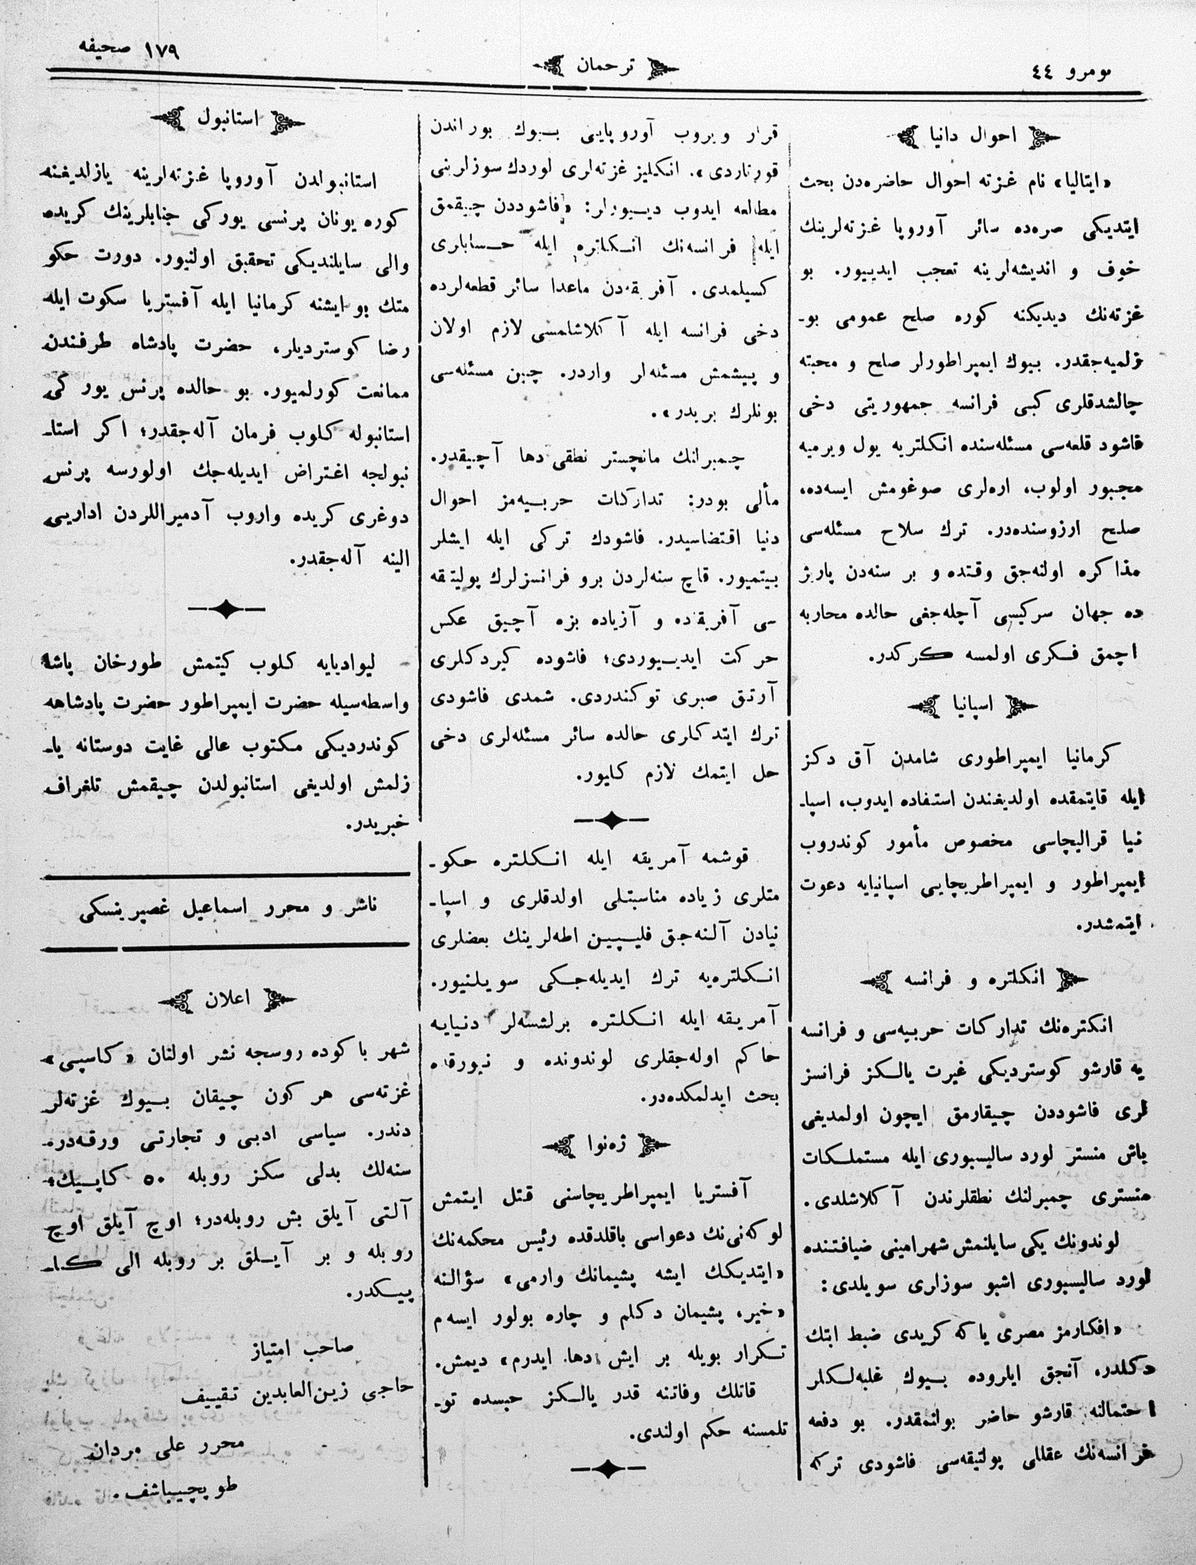 نومرو ٤٤
ترجمان
١٧٩ صحیفه
احوال دانیا
«ایتالیا» نام غزته احوال حاضره‌دن بحث
ایتدیکی صره‌ده سائر آوروپا غزته‌لرینك
خوف و اندیشه‌لرینه تعجب ایدییور. بو
غزته‌نك دیدیکنه کوره صلح عمومی بو-
زلمیه‌جقدر. بیوك ایمپراطورلر صلح و محبته
چالشدقلری کبی فرانسه جمهوریتی دخی
فاشود قلعه‌سی مسئله‌سنده انکلتریه یول ویرمیه
مجبور اولوب، اره‌لری صوغومش ایسه‌ده،
صلح ارزوسنده‌در. ترك سلاح مسئله‌سی
مذاکره اولنه‌جق وقتده و بر سنه‌دن پاریژ
ده جهان سرکیسی آچله‌جغی حالده محاربه
اچمق فکری اولمسه کرکدر.
اسپانیا
کرمانیا ایمپراطوری شامدن آق دکز
ایله قایتمقده اولدیغندن استفاده ایدوب، اسپا-
نیا قرالیچاسی مخصوص مأمور کوندروب
ایمپراطور و ایمپراطریچایی اسپانیایه دعوت
ایتمشدر.
انکلتره و فرانسه
انکتره‌نك تدارکات حربیه‌سی و فرانسه
یه قارشو کوستردیکی غیرت یالکز فرانسز
لری فاشوددن چیقارمق ایچون اولمدیغی
باش منستر لورد سالیسبوری ایله مستملکات
منستری چمبرلنك نطقلرندن آکلاشلدی.
لوندونك یکی سایلنمش شهرامینی ضیافتنده
لورد سالیسبوری اشبو سوزلری سویلدی:
«افکارمز مصری یاکه کریدی ضبط ایتك
دکلدر، آنجق ایلروده بیوك غلبه‌لکلر
احتمالنه قارشو حاضر بولنمقدر. بو دفعه
فرانسه‌نك عقللی پولتیقه‌سی فاشودی ترکه
قرار ویروب آوروپایی بیوك بوراندن
قورتاردی». انکلیز غزته‌لری لوردك سوزلرینی
مطالعه ایدوب دییورلر: «فاشوددن چیقمق
ایله فرانسه‌نك انکلتره ایله حسابلری
کسیلمدی. آفریقه‌دن ماعدا سائر قطعه‌لرده
دخی فرانسه ایله آکلاشلمسی لازم اولان
و پیشمش مسئله‌لر واردر. چین مسئله‌سی
بونلرك بریدر».
چمبرلنك مانچستر نطقی دها آچیقدر.
مألی بودر: تدارکات حربیه‌مز احوال
دنیا اقتضاسیدر. فاشودك ترکی ایله ایشلر
بیتمیور. قاچ سنه‌لردن برو فرانسزلرك پولیتقه
سی آفریقه‌ده و آزیاده بزه آچیق عکس
حرکت ایدییوردی؛ فاشوده کیردکلری
آرتق صبری توکندردی. شمدی فاشودی
ترك ایتدکلری حالده سائر مسئله‌لری دخی
حل ایتمك لازم کلیور.
قوشمه آمریقه ایله انکلتره حکو-
متلری زیاده مناسبتلی اولدقلری و اسپا-
نیادن آلنه‌جق فلیپین اطه‌لرینك بعضلری
انکلتره‌یه ترك ایدیله‌جکی سویلنیور.
آمریقه ایله انکلتره برلشسه‌لر دنیایه
حاکم اوله‌جقلری لوندونده و نیورقده
بحث ایدلمکده‌در.
ژه‌نوا
آفستریا ایمپراطریچاسنی قتل ایتمش
لوکه‌نی‌نك دعواسی باقلدقده رئیس محکمه‌نك
«ایتدیکك ایشه پشیمانك وارمی» سؤالنه
«خیر، پشیمان دکلم و چاره بولور ایسه‌م
تکرار بویله بر ایش دها ایدرم» دیمش.
قاتلك وفاتنه قدر یالکز حبسده تو-
تلمسنه حکم اولندی.
استانبول
استانبولدن آوروپا غزته‌لرینه یازلدیغنه
کوره یونان پرنسی یورکی جنابلرینك کریده
والی سایلندیکی تحقیق اولنیور. دورت حکو
متك بو ایشنه کرمانیا ایله آفستریا سکوت ایله
رضا کوستردیلر، حضرت پادشاه طرفندن
ممانعت کورلمیور. بو حالده پرنس یورکی
استانبوله کلوب فرمان آله‌جقدر؛ اکر استا-
نبولجه اغتراض ایدیله‌جك اولورسه پرنس
دوغری کریده واروب آدمیراللردن اداریی
الینه آله‌جقدر.
لیوادیایه کلوب کیتمش طورخان پاشا
واسطه‌سیله حضرت ایمپراطور حضرت پادشاهه
کوندردیکی مکتوب عالی غایت دوستانه یا-
زلمش اولدیغی استانبولدن چیقمش تلغراف
خبریدر.
ناشر و محرر اسماعیل غصپرینسکی
اعلان
شهر باکوده روسجه نشر اولنان «کاسپی»
غزته‌سی هرکون چیقان بیوك غزته‌لر
دندر. سیاسی ادبی و تجارتی ورقه‌در.
سنه‌لك بدلی سکز روبله ٥٠ کاپیك؛
آلتی آیلق بش روبله‌در؛ اوچ آیلق اوچ
روبله و بر آیلق بر روبله الی کا-
پیکدر.
صاحب امتیاز
حاجی زین‌العابدین تقییف
محرر علی مردان
طوپچیباشف.